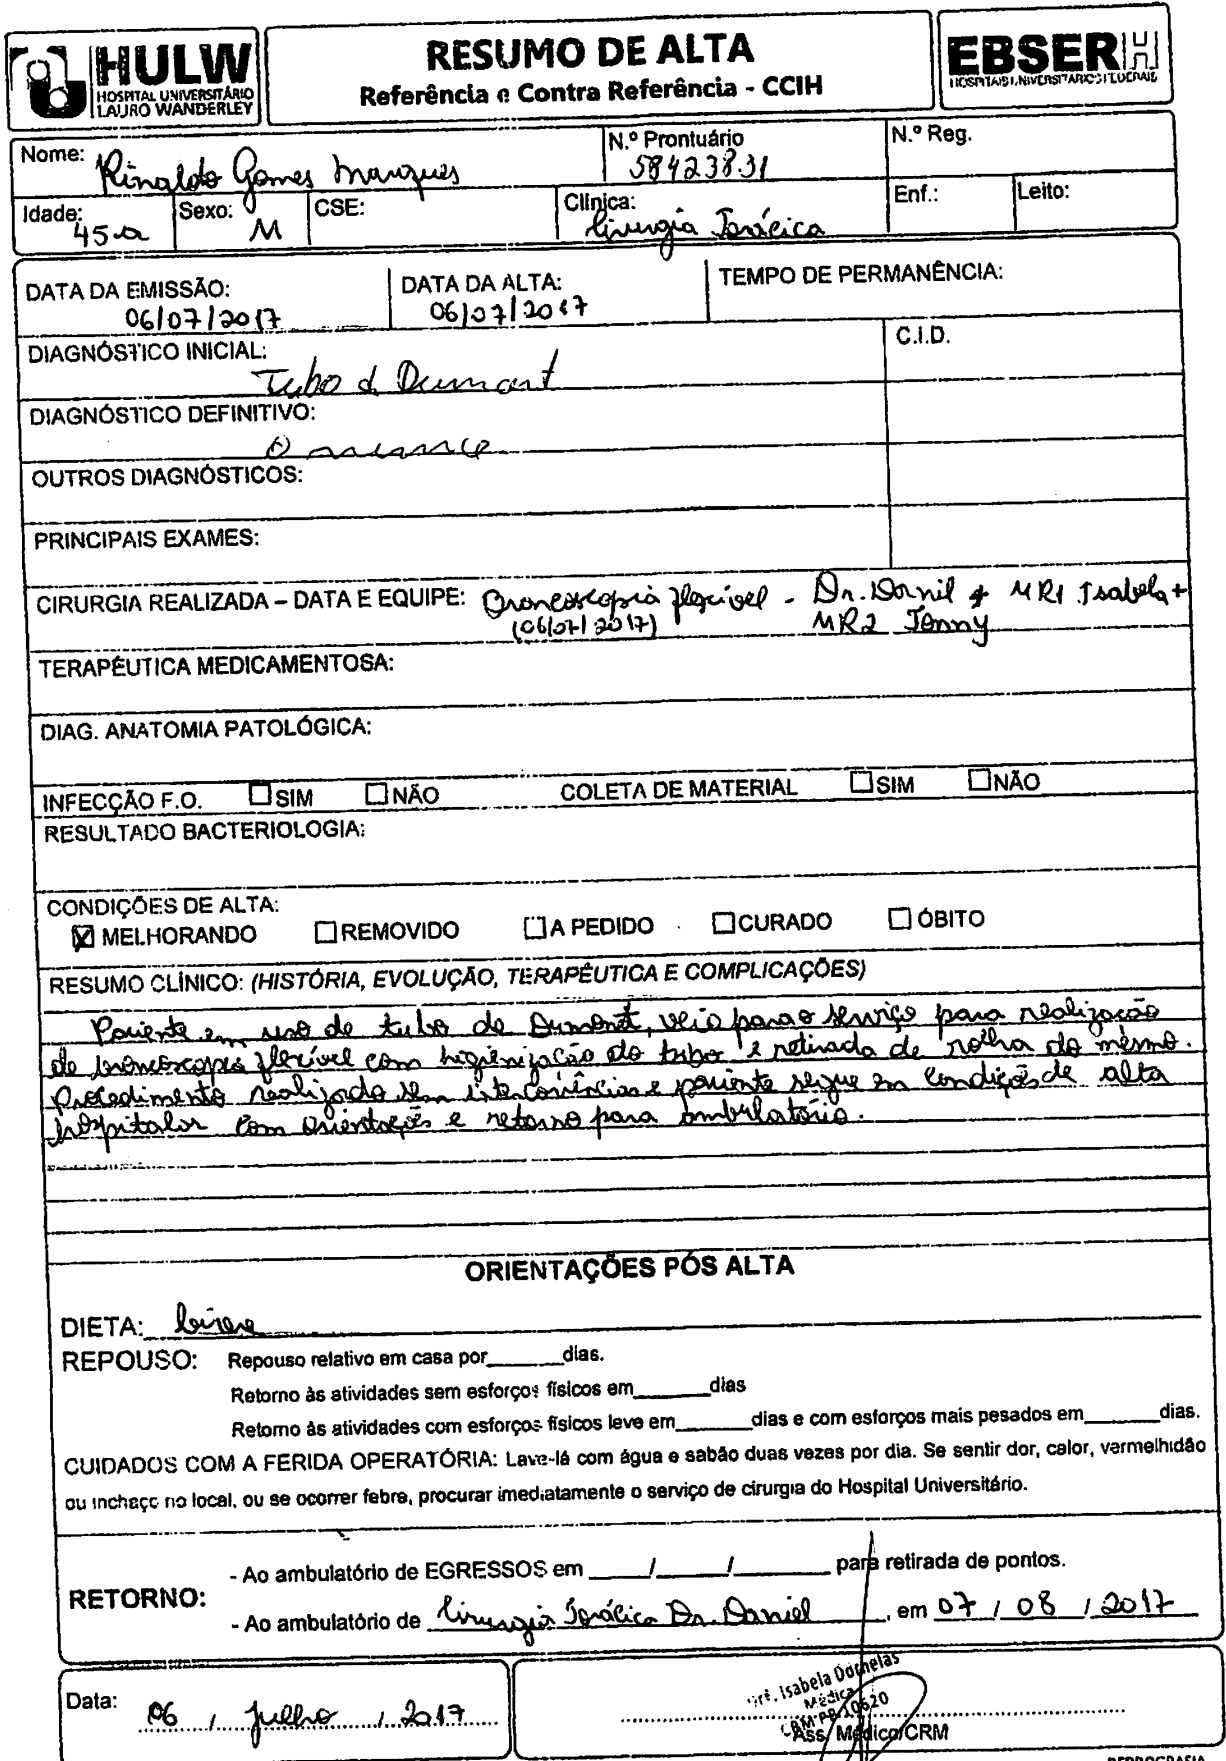 HULW
HOSPITAL UNIVERSITÁRIO
LAURO WANDERLEY
RESUMO DE ALTA
Referência e Contra Referência - CCIH
EBSERH
HOSPITAIS UNIVERSITÁRIOS FEDERAIS
Nome: Rinaldo Gomes Marques
N.º Prontuário 58423831
N.º Reg.
Idade: 45 a
Sexo: M
CSE:
Clínica: Cirurgia Torácica
Enf.:
Leito:
DATA DA EMISSÃO: 06/07/2017
DATA DA ALTA: 06/07/2017
TEMPO DE PERMANÊNCIA:
DIAGNÓSTICO INICIAL: Tubo d Dumont
C.I.D.
DIAGNÓSTICO DEFINITIVO: O mesmo
OUTROS DIAGNÓSTICOS:
PRINCIPAIS EXAMES:
CIRURGIA REALIZADA – DATA E EQUIPE: Broncoscopia flexível - Dr. Daniel + MR1 Isabela +
(06/07/2017) MR2 Jenny
TERAPÊUTICA MEDICAMENTOSA:
DIAG. ANATOMIA PATOLÓGICA:
INFECÇÃO F.O. ☐ SIM ☐ NÃO COLETA DE MATERIAL ☐ SIM ☐ NÃO
RESULTADO BACTERIOLOGIA:
CONDIÇÕES DE ALTA:
☒ MELHORANDO ☐ REMOVIDO ☐ A PEDIDO ☐ CURADO ☐ ÓBITO
RESUMO CLÍNICO: (HISTÓRIA, EVOLUÇÃO, TERAPÊUTICA E COMPLICAÇÕES)
Paciente em uso de tubo de Dumont, veio para o serviço para realização
de broncoscopia flexível com higienização do tubo e retirada de rolha do mesmo.
Procedimento realizado sem intercorrências e paciente segue em condições de alta
hospitalar com orientações e retorno para ambulatório.
ORIENTAÇÕES PÓS ALTA
DIETA: Livre
REPOUSO: Repouso relativo em casa por______dias.
Retorno às atividades sem esforços físicos em______dias
Retorno às atividades com esforços físicos leve em______dias e com esforços mais pesados em______dias.
CUIDADOS COM A FERIDA OPERATÓRIA: Lave-lá com água e sabão duas vezes por dia. Se sentir dor, calor, vermelhidão
ou inchaço no local, ou se ocorrer febre, procurar imediatamente o serviço de cirurgia do Hospital Universitário.
RETORNO:
- Ao ambulatório de EGRESSOS em ____/____/______ para retirada de pontos.
- Ao ambulatório de Cirurgia Torácica Dr. Daniel, em 07 / 08 / 2017
Data: 06 / Julho / 2017
Dra. Isabela Dornelas
Médica
CRM PB 10620
Ass. Médico/CRM
REPROGRAFIA